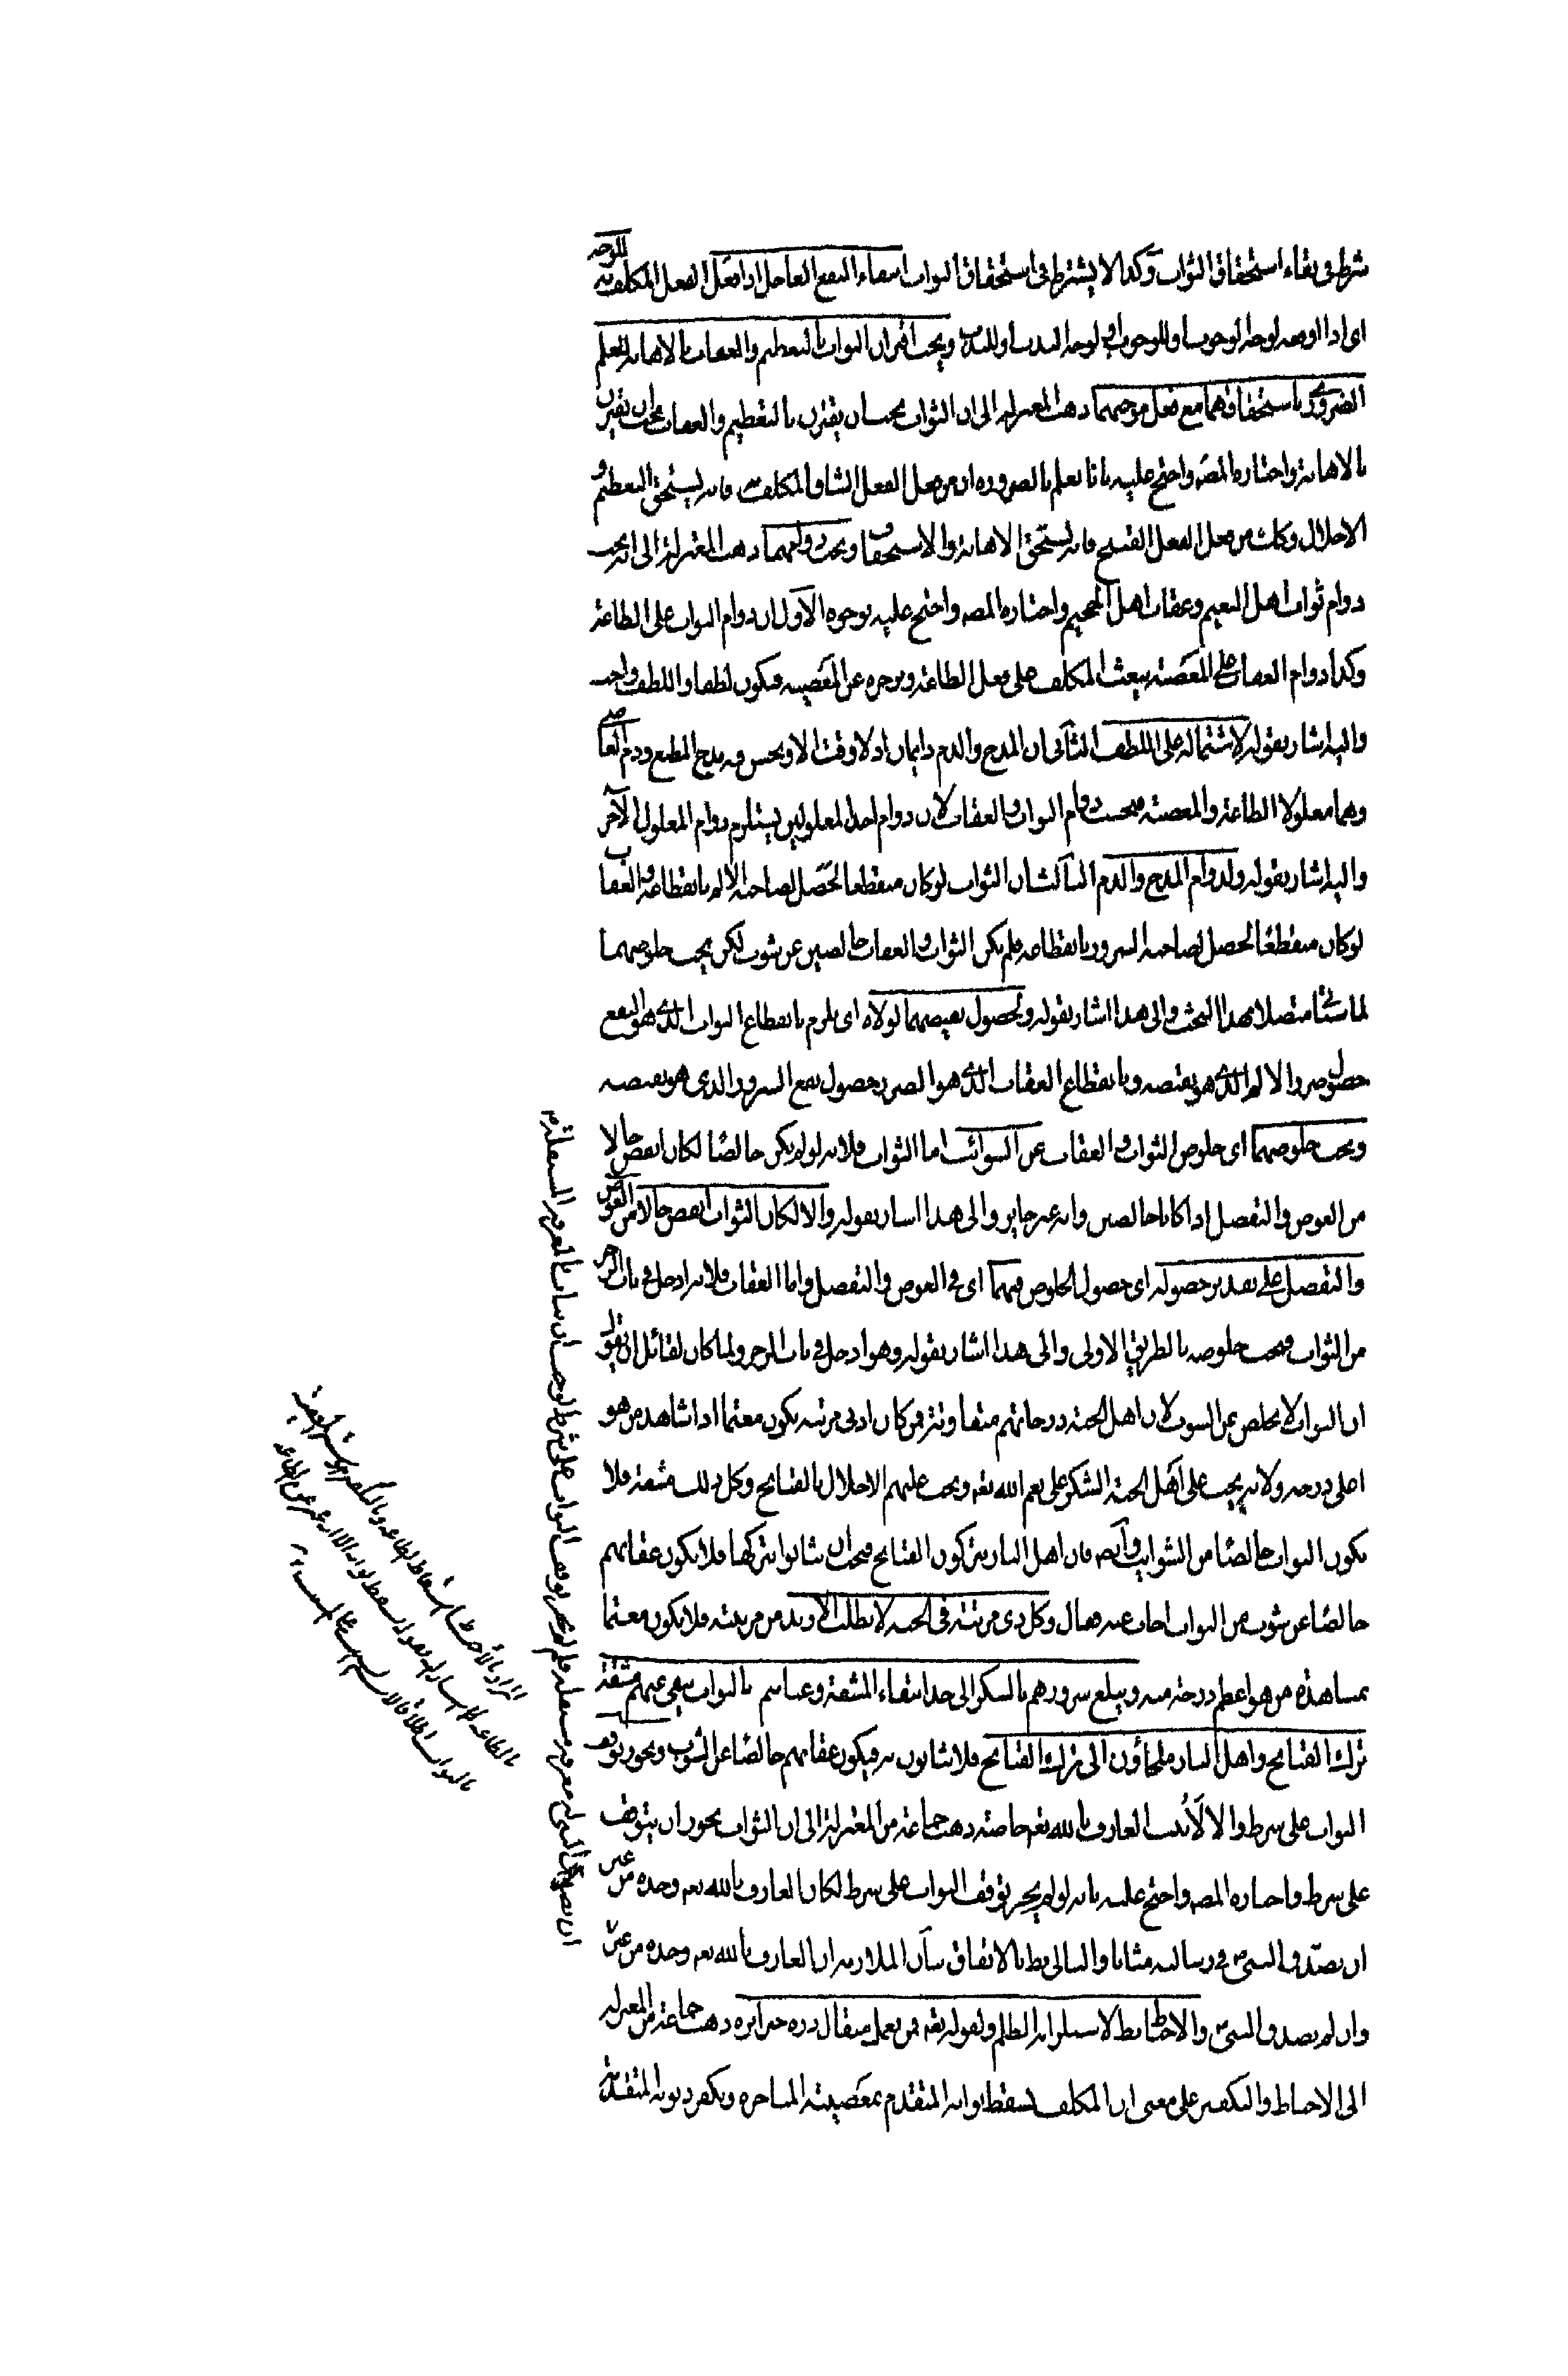 شرط في بقاء استحقاق الثواب وكذا لا يشترط في استحقاق الثواب انتفاء النفع العاجل اذا فعل الفعل المكلف به للوجه
اى اذا اوقعه لوجه الوجوب او للوجوب او لوجه الندب او للندب ويجب اقتران الثواب بالتعظيم والعقاب بالاهانة للعلم
الضرورى باستحقاقهما مع فعل موجبهما ذهب المعتزلة الى ان الثواب يجب ان يقترن بالتعظيم والعقاب يجب ان يقترن
بالاهانة واختاره المصـ واحتج عليه بانا نعلم بالضرورة ان من فعل الفعل الشاق المكلف به فانه يستحق التعظيم و
الاجلال وكذلك من فعل الفعل القبيح فانه يستحق الاهانة والاستخفاف ويجب دوامهما ذهب المعتزلة الى انه يجب
دوام ثواب اهل النعيم وعقاب اهل الجحيم واختاره المصـ واحتج عليه بوجوه الاول ان دوام الثواب على الطاعة
وكذا دوام العقاب على المعصية يبعث المكلف على فعل الطاعة ويزجره عن المعصية فيكون لطفا واللطف واجب
واليه اشار بقوله لاشتماله على اللطف الثاني ان المدح والذم دايمان اذ لا وقت الا ويحسن فيه مدح المطيع وذم العاصى
وهما معلولا الطاعة والمعصية فيجب دوام الثواب والعقاب لان دوام احد المعلولين يستلزم دوام المعلول الآخر
واليه اشار بقوله ولدوام المدح والذم الثالث ان الثواب لو كان منقطعا لحصل لصاحبه الالم بانقطاعه والعقاب
لو كان منقطعا لحصل لصاحبه السرور بانقطاعه فلم يكن الثواب والعقاب خالصين عن شوب لكن يجب خلوصهما
لما سيأتي متصلا بهذا البحث والى هذا اشار بقوله ولحصول نقيضهما لولاه اى يلزم بانقطاع الثواب الذى هو النفع
حصول ضرر الالم الذى هو نقيضه وبانقطاع العقاب الذى هو الضرر حصول نفع السرور الذى هو نقيضه
ويجب خلوصهما اى خلوص الثواب والعقاب عن الشوائب اما الثواب فلانه لو لم يكن خالصا لكان انقص حالا
من العوض والتفضل اذا كانا خالصين وانه غير جايز والى هذا اشار بقوله والا لكان الثواب انقص حالا من العوض
والتفضل على تقدير حصوله اى حصول الخلوص فيهما اى في العوض والتفضل واما العقاب فلانه ادخل في باب الزجر
من الثواب فيجب خلوصه بالطريق الاولى والى هذا اشار بقوله وهو ادخل في باب الزجر ولما كان لقائل ان يقول
ان الثواب لا يخلص عن الشوب لان اهل الجنة درجاتهم متفاوتة فمن كان ادنى مرتبة يكون مغتما اذا شاهد من هو
اعلى درجة ولانه يجب على اهل الجنة الشكر على نعم الله تعـ ويجب عليهم الاخلال بالقبائح وكل ذلك مشقة فلا
يكون الثواب خالصا من الشوايب وايضـ فان اهل النار يتركون القبائح فيجب ان يثابوا بتركها فلا يكون عقابهم
خالصا عن شوب من الثواب اجاب عنه فقال وكل ذى مرتبة في الجنة لا يطلب الازيد من مرتبته فلا يكون مغتما
بمشاهدة من هو اعظم درجة منه ويبلغ سرورهم بالشكر الى حد انتفاء المشقة وغناءهم بالثواب ينفى عنهم مشقة
ترك القبائح واهل النار ملجأون الى ترك القبائح فلا يثابون به فيكون عقابهم خالصا عن الشوب ويجوز توقف
الثواب على شرط والا لاثيب العارف بالله تعـ خاصة ذهب جماعة من المعتزلة الى ان الثواب يجوز ان يتوقف
على شرط واختاره المصـ واحتج عليه بانه لو لم يجز توقف الثواب على شرط لكان العارف بالله تعـ وحده من غير
ان يصدق النبي ص في رسالته مثابا والتالى بط بالاتفاق بيان الملازمة ان العارف بالله تعـ وحده من غير
وان لم يصدق النبي ص والاحباط بط لاستلزامه الظلم ولقوله تعـ فمن يعمل مثقال ذرة خيرا يره ذهب جماعة من المعتزلة
الى الاحباط والتكفير على معنى ان المكلف يسقط ثوابه المتقدم بمعصيته المتاخرة ويكفر ذنوبه المتقدمة